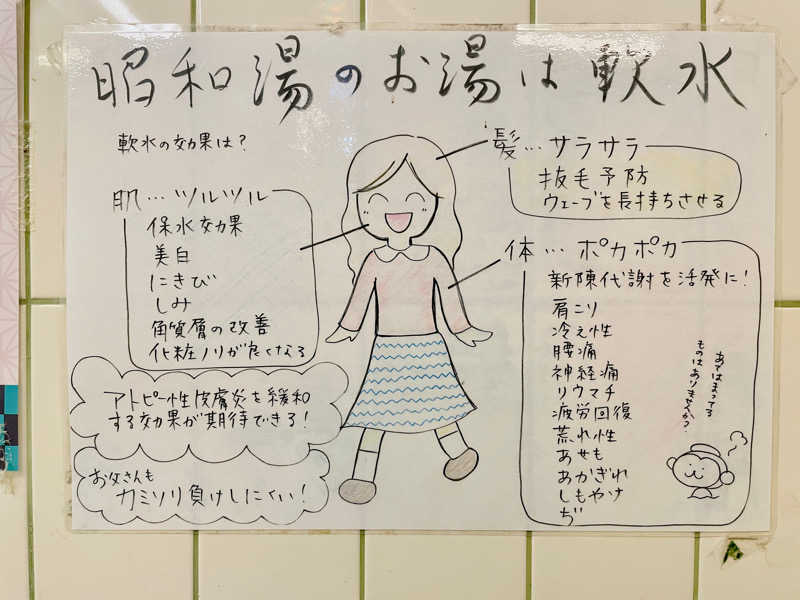 昭和湯のお湯は軟水
軟水の効果は？
肌…ツルツル
保水効果
美白
にきび
しみ
角質層の改善
化粧ノリが良くなる
アトピー性皮膚炎を緩和
する効果が期待できる！
お父さんも
カミソリ負けしにくい！
髪…サラサラ
抜毛予防
ウェーブを長持ちさせる
体…ポカポカ
新陳代謝を活発に！
肩こり
冷え性
腰痛
神経痛
リウマチ
疲労回復
荒れ性
あせも
あかぎれ
しもやけ
ぢ
あてはまってる
ものはありませんか？